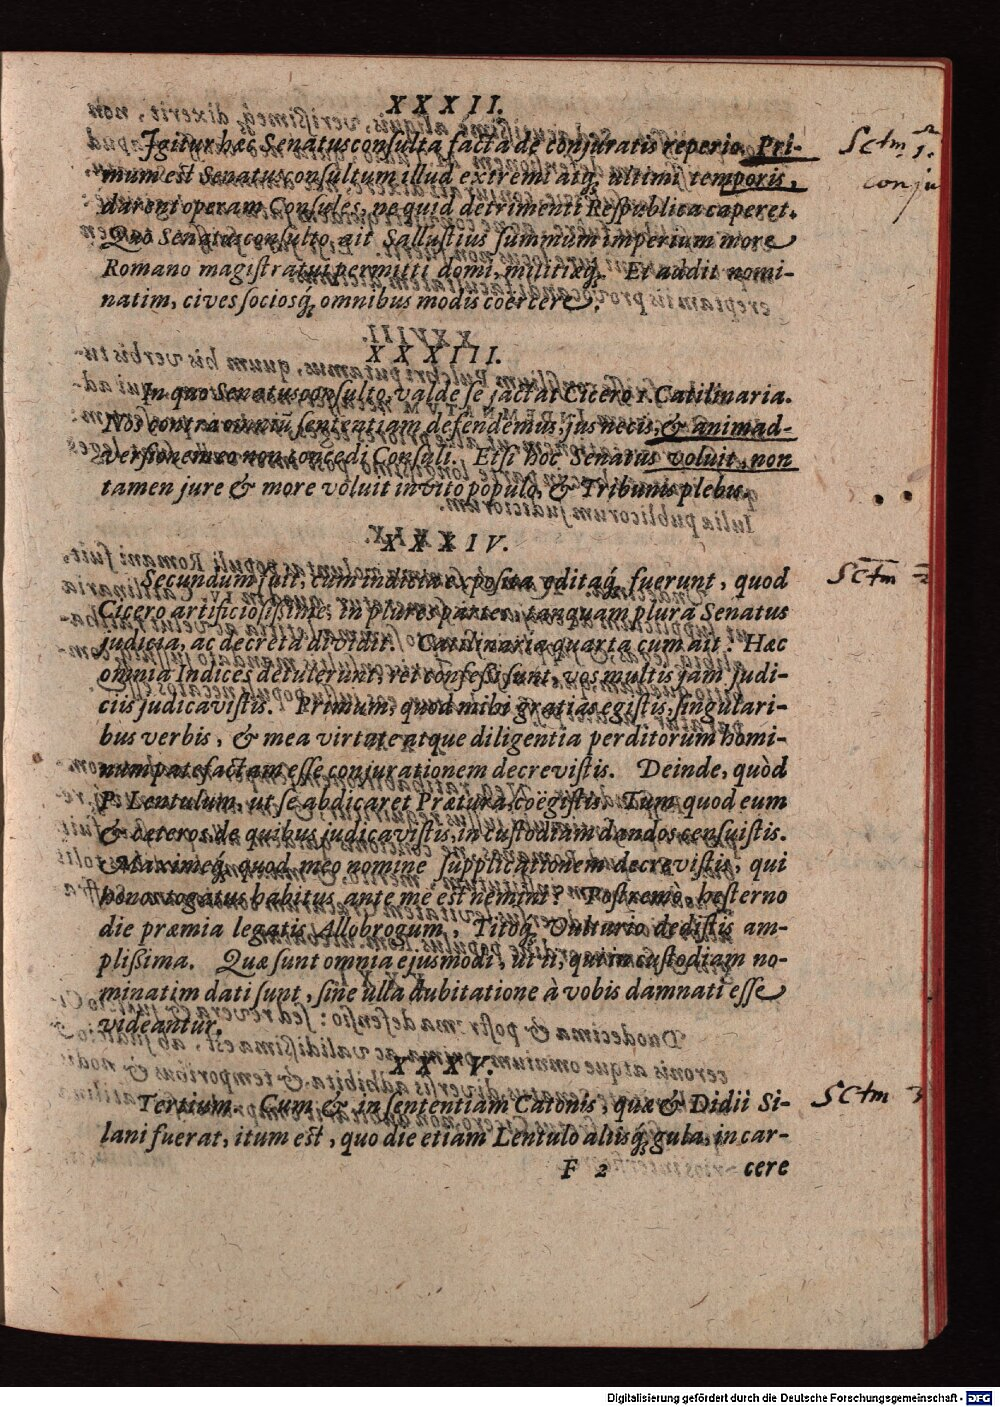 XXXII.
Igitur hæc Senatusconſulta facta de conjuratis reperio. Pri-
mum eſt Senatusconſultum illud extremi atq́; ultimi temporis,
darent operam Conſules, ne quid detrimenti Reſpublica caperet.
Quo Senatusconſulto, ait Salluſtius ſummum imperium more
Romano magiſtratui permitti domi, militiæq́;. Et addit nomi-
natim, cives ſociosq́; omnibus modis coërcere.
XXXIII.
In quo Senatusconſulto, valde ſe jactat Cicero 1. Catilinaria.
Nos contra omniũ ſententiam defendemus, jus necis, & animad-
verſionem eo non concedi Conſuli. Etſi hoc Senatus voluit, non
tamen jure & more voluit invito populo, & Tribunis plebis.
XXXIV.
Secundum fuit, cum indicia expoſita editaq́; fuerunt, quod
Cicero artificioſiſſime, in plures partes, tanquam plura Senatus
judicia, ac decreta dividit. Catilinaria quarta cum ait: Hæc
omnia Indices detulerunt, rei confeſſi ſunt, vos multis jam judi-
ciis judicaviſtis. Primum, quod mihi gratias egiſtis, ſingulari-
bus verbis, & mea virtute atque diligentia perditorum homi-
num patefactam eſſe conjurationem decreviſtis. Deinde, quòd
P. Lentulum, ut ſe abdicaret Prætura, coëgiſtis. Tum quod eum
& ceteros, de quibus judicaviſtis, in cuſtodiam dandos cenſuiſtis.
Maximeq́; quod meo nomine ſupplicationem decreviſtis, qui
honos togatus habitus ante me eſt nemini? Poſtremò, heſterno
die præmia legatis Allobrogum, Titoq́; Vulturio dediſtis am-
pliſſima. Quæ ſunt omnia ejusmodi, ut ii, qui in cuſtodiam no-
minatim dati ſunt, ſine ulla dubitatione à vobis damnati eſſe
videantur.
XXXV.
Tertium. Cum & in ſententiam Catonis, quæ & Didii Si-
lani fuerat, itum eſt, quo die etiam Lentulo aliisq́; gula, in car-
F 2 cere
SCtm 1.
conju
SCtm 2
SCtm 3
Digitalisierung gefördert durch die Deutsche Forschungsgemeinschaft - DFG